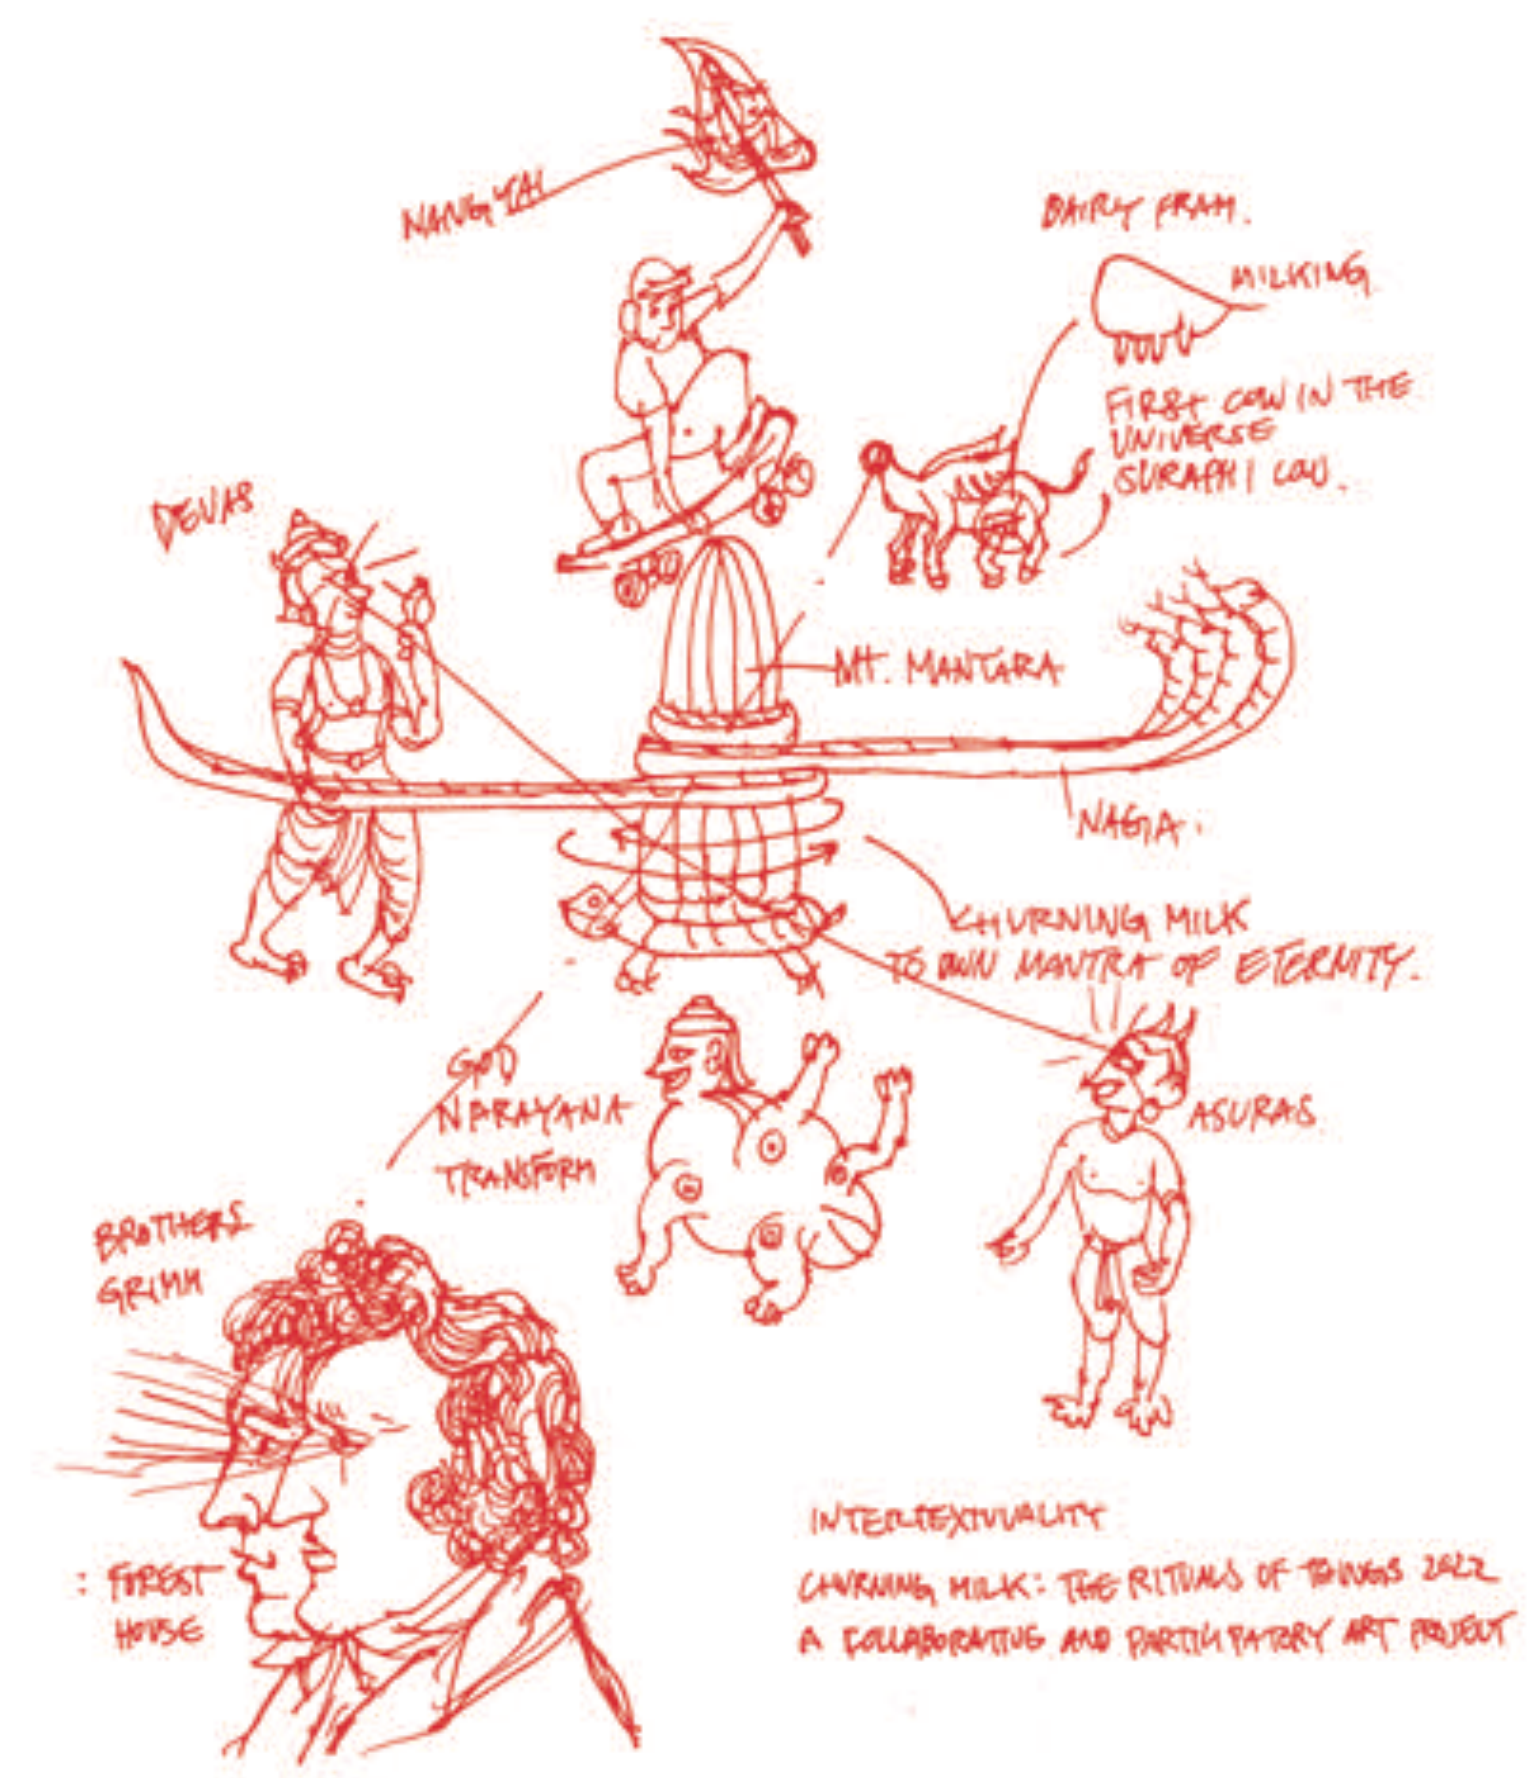 NANG YAI
DAIRY FRAM.
MILKING
FIRST COW IN THE
UNIVERSE
SURAPHI COW.
DEVAS
MT. MANTARA
NAGA.
CHURNING MILK
TO OWN MANTRA OF ETERNITY.
GOD
NARAYANA
TRANSFORM
ASURAS
BROTHERS
GRIMM
: FOREST
HOUSE
INTERTEXTUALITY
CHURNING MILK: THE RITUALS OF THINGS 2022
A COLLABORATIVE AND PARTICIPATORY ART PROJECT